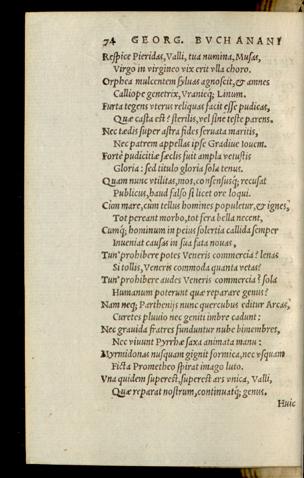 74 GEORG. BVCHANANI
Respice Pieridas, Valli, tua numina, Musas,
Virgo in virgineo vix erit vlla choro.
Orphea mulcentem syluas agnoscit, & amnes
Calliope genetrix, Vranieq; Linum.
Furta tegens vterus reliquas facit esse pudicas,
Quæ casta est? sterilis, vel sine teste parens.
Nec tædis super astra fides seruata maritis,
Nec patrem appellas ipse Gradiue Iouem.
Fortè pudicitiæ sæclis fuit ampla vetustis
Gloria: sed titulo gloria sola tenus.
Quam nunc vtilitas, mos, consensusq; recusat
Publicus, haud falso si licet ore loqui.
Cum mare, cùm tellus homines populetur, & ignes,
Tot pereant morbo, tot fera bella necent,
Cumq; hominum in peius solertia callida semper
Inueniat causas in sua fata nouas,
Tun' prohibere potes Veneris commercia? lenas
Si tollis, Veneris commoda quanta vetas?
Tun' prohibere audes Veneris commercia? sola
Humanum poterunt quæ reparare genus?
Nam neq; Parthenijs nunc quercubus editur Arcas,
Curetes pluuio nec geniti imbre cadunt:
Nec grauida fratres funduntur nube bimembres,
Nec viuunt Pyrrhæ saxa animata manu:
Myrmidonas nusquam gignit formica, nec vsquam
Ficta Prometheo spirat imago luto.
Vna quidem superest, superest ars vnica, Valli,
Quæ reparat nostrum, continuatq; genus.
Huic